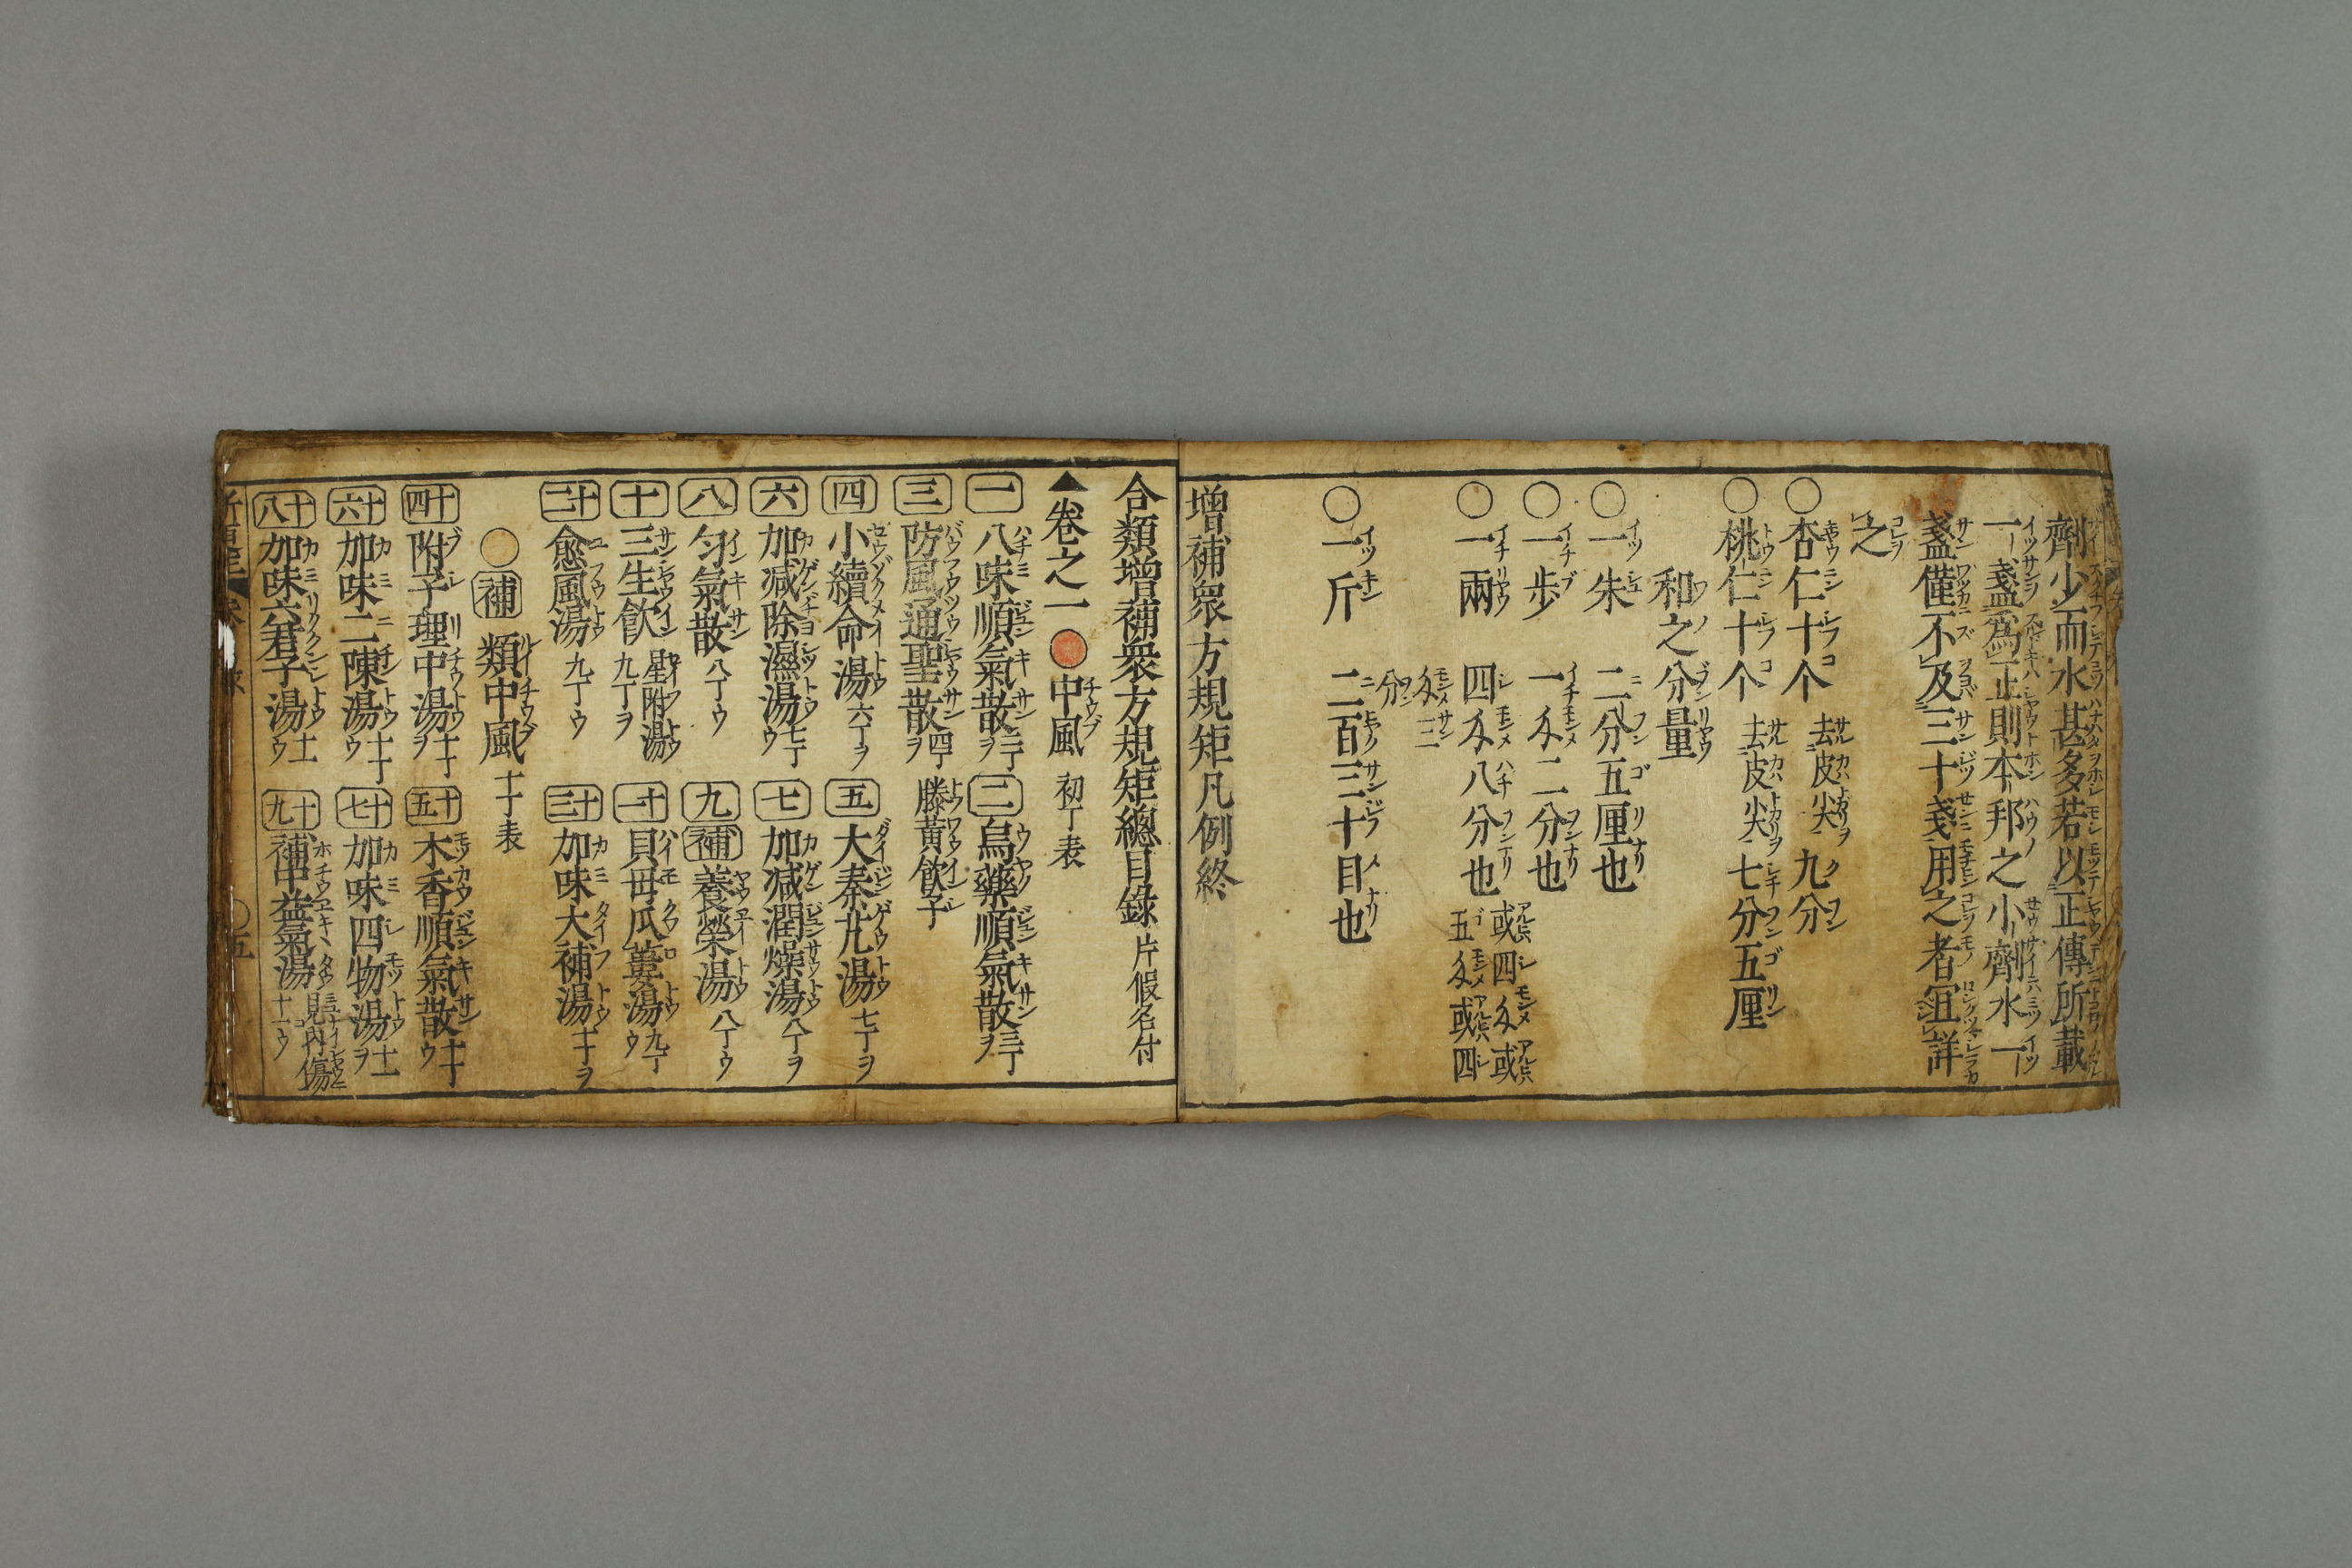 劑少而水甚多若以正傳所載
一盞爲正則本邦之小劑水一
盞僅不及三十戔用之者宜詳
之
○杏仁十个 去皮尖 九分
○桃仁十个 去皮尖 七分五厘
和之分量
○一朱 二分五厘也
○一步 一匁二分也
○一兩 四匁八分也 或四匁或
五匁或四
匁三
分
○一斤 二百三十目也
增補衆方規矩凡例終
合類增補衆方規矩總目錄 片假名付
▲卷之一 中風 初丁表
一 八味順氣散 二丁ヲ 二 烏藥順氣散 三丁ヲ
三 防風通聖散 四丁ヲ 滕黃飮子
四 小續命湯 六丁ヲ 五 大秦艽湯 七丁ヲ
六 加減除濕湯 七丁ウ 七 加減潤燥湯 八丁ヲ
八 匀氣散 八丁ウ 九 補 養榮湯 八丁ウ
十 三生飮 九丁ヲ 星附湯 十一 貝母瓜蔞湯 九丁ウ
十二 愈風湯 九丁ウ 十三 加味大補湯 十丁ヲ
○補 類中風 十丁表
十四 附子理中湯 十丁ヲ 十五 木香順氣散 十丁ウ
十六 加味二陳湯 十丁ウ 十七 加味四物湯 十一ヲ
十八 加味六君子湯 十一ウ 十九 補中益氣湯 見内傷 十一ウ
五